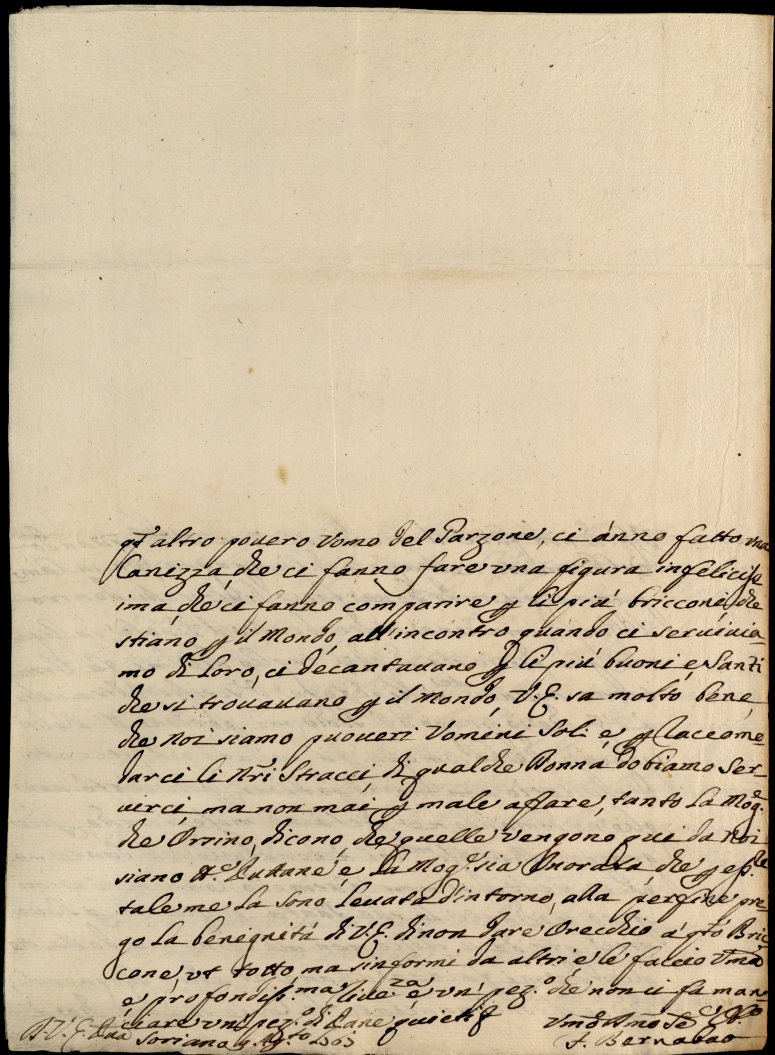 altro povero Vomo del Parzone, ci ánno fatto vna
Canizza, che ci fanno fare vna figura infelicis
ima che ci fanno comparire li piú bricconi, che
stiano il Mondo, all'incontro quando ci servivia-
mo di Loro, ci decantavano li piú buoni e Santi
che si trovavano il Mondo, V.E. sa molto bene,
che noi siamo poveri Vomini Soli e
darci li Nri Stracci, di qualche Donna dobiamo Ser-
virci, ma non mai male affare, tanto la Mog.e
che Orsino, dicono, che quelle vengono qui da Noi
siano e La Mog.e sia Onorata che
tale me la sono levata d'intorno, alla perfine pre-
go la benegnitá di V.E. di non dare Orecchio á Bric
cone, totto, ma s'informi da altri e le faccio
e profondiss.ma e vn' pez.o che non ci fa man-
ciare vn' pez.o di Pane
Di V.E.
Soriano
F. Bernabao